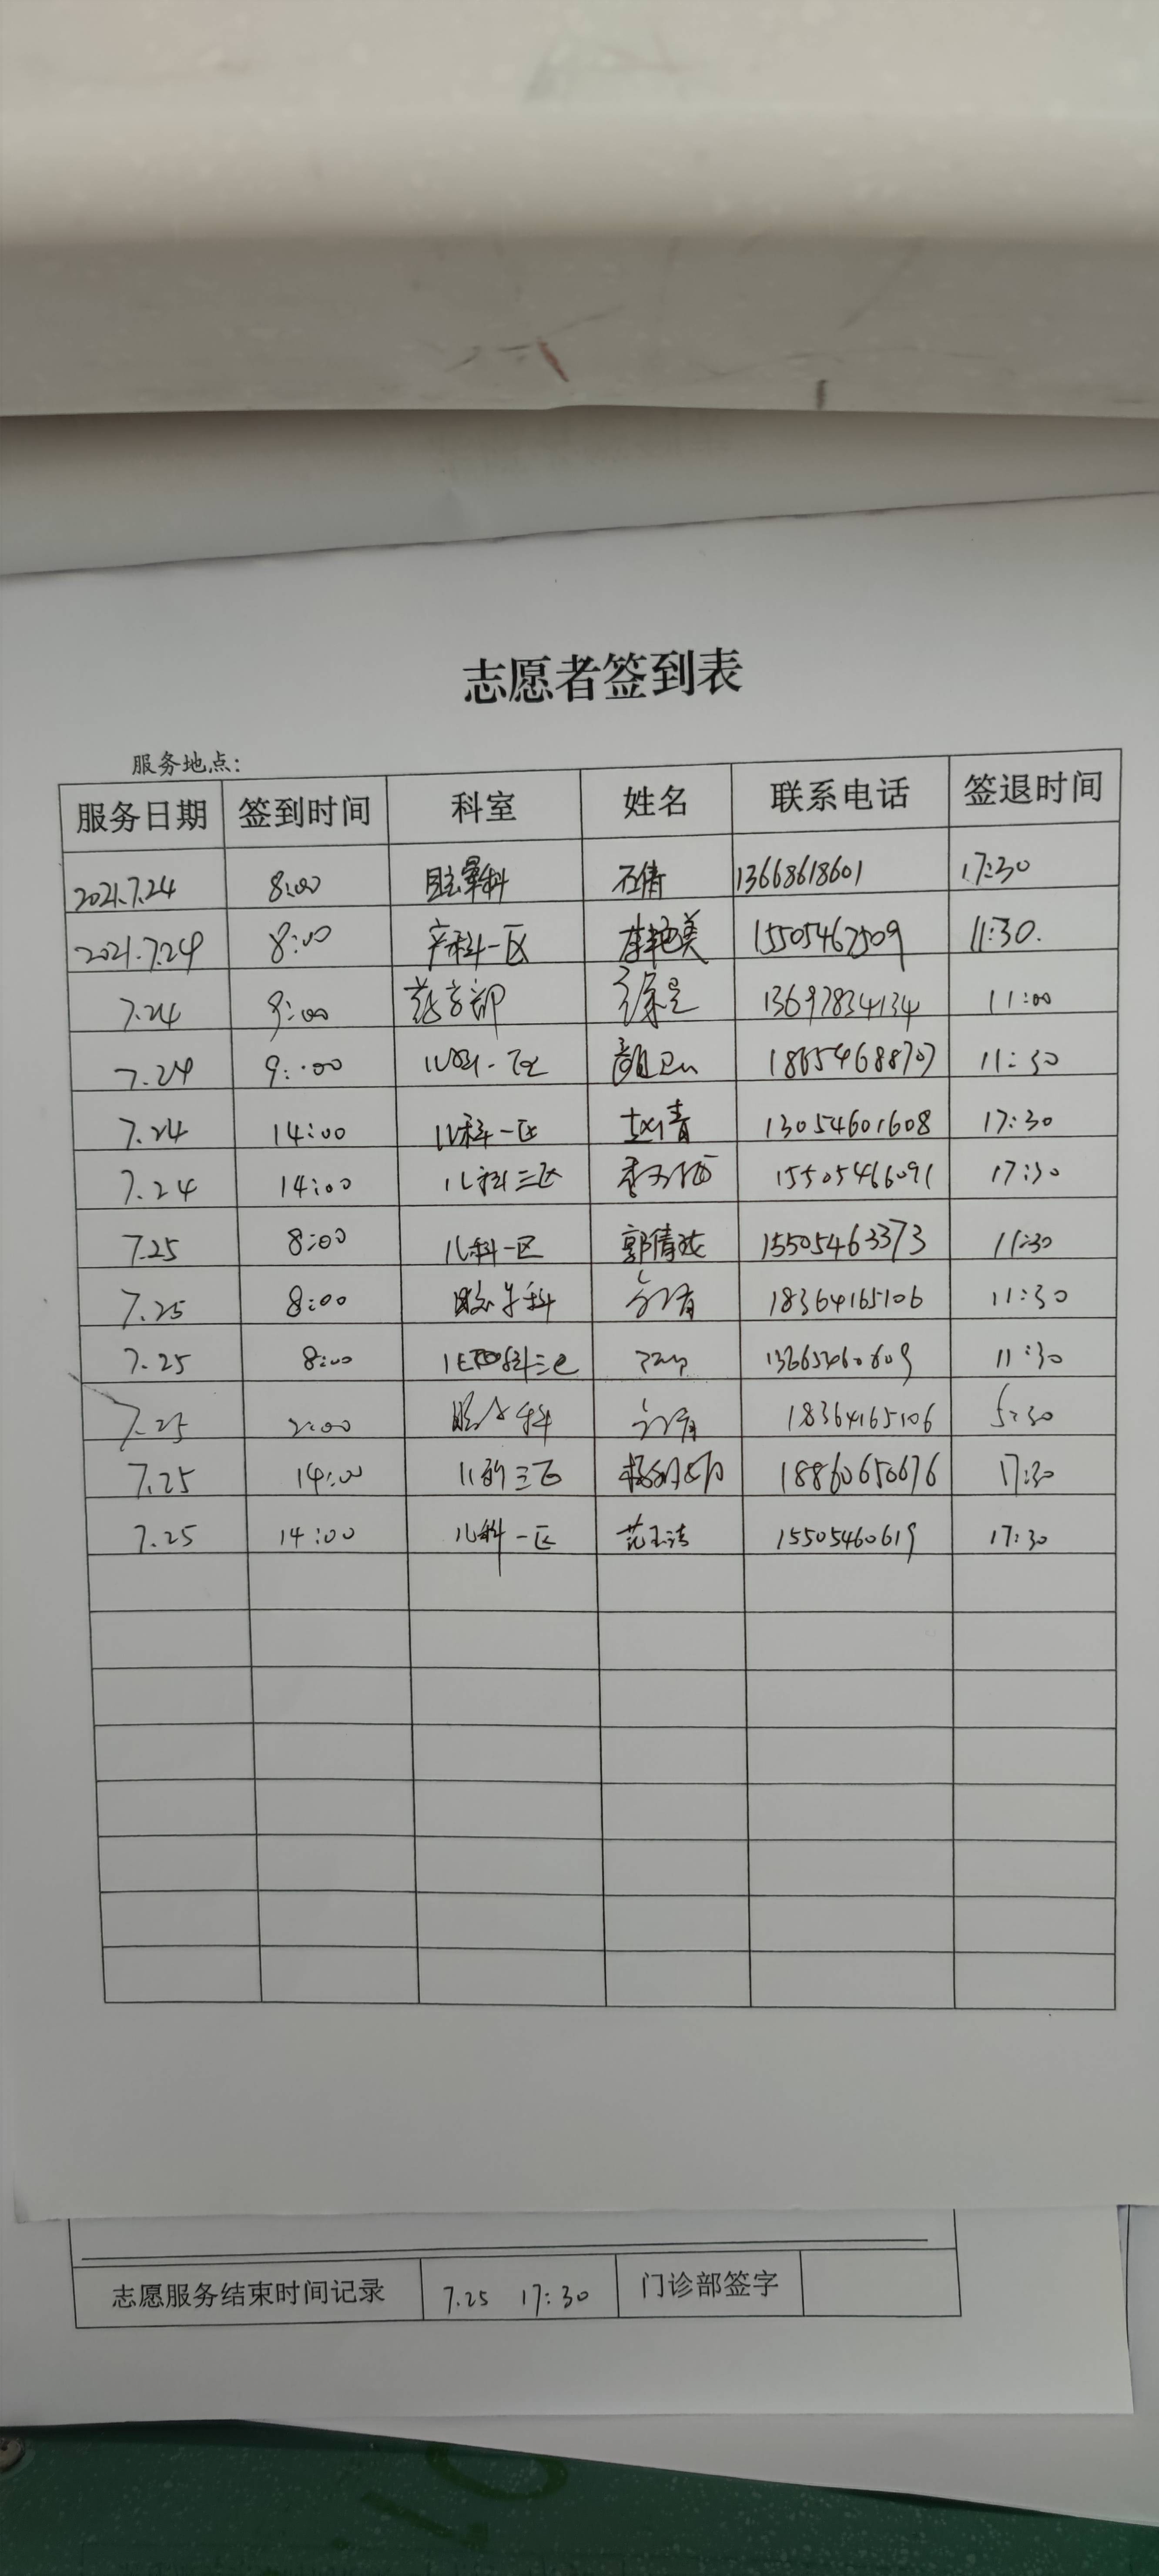 志愿者签到表
服务地点:
服务日期 签到时间 科室 姓名 联系电话 签退时间
2021.7.24 8:00 石倩 13668618601 17:30
2021.7.24 8:00 产科一区 李艳美 15505462509 11:30.
7.24 9:00 药学部 徐 13697834134 11:00
7.24 9:00 颜卫 18654688707 11:30
7.24 14:00 儿科一区 赵倩 13054601608 17:30
7.24 14:00 儿科三区 15505466091 17:30
7.25 8:00 儿科一区 郭倩 15505463373 11:30
7.25 8:00 18364165106 11:30
7.25 8:00 13665460609 11:30
7.25 2:00 18364165106 5:30
7.25 14:00 儿科三区 18860650676 17:30
7.25 14:00 儿科一区 范玉洁 15505460619 17:30
志愿服务结束时间记录 7.25 17:30 门诊部签字